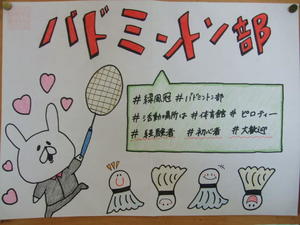 バドミントン部
#緑風冠 #バドミントン部
#活動場所は #体育館 #ピロティー
#経験者 #初心者 #大歓迎